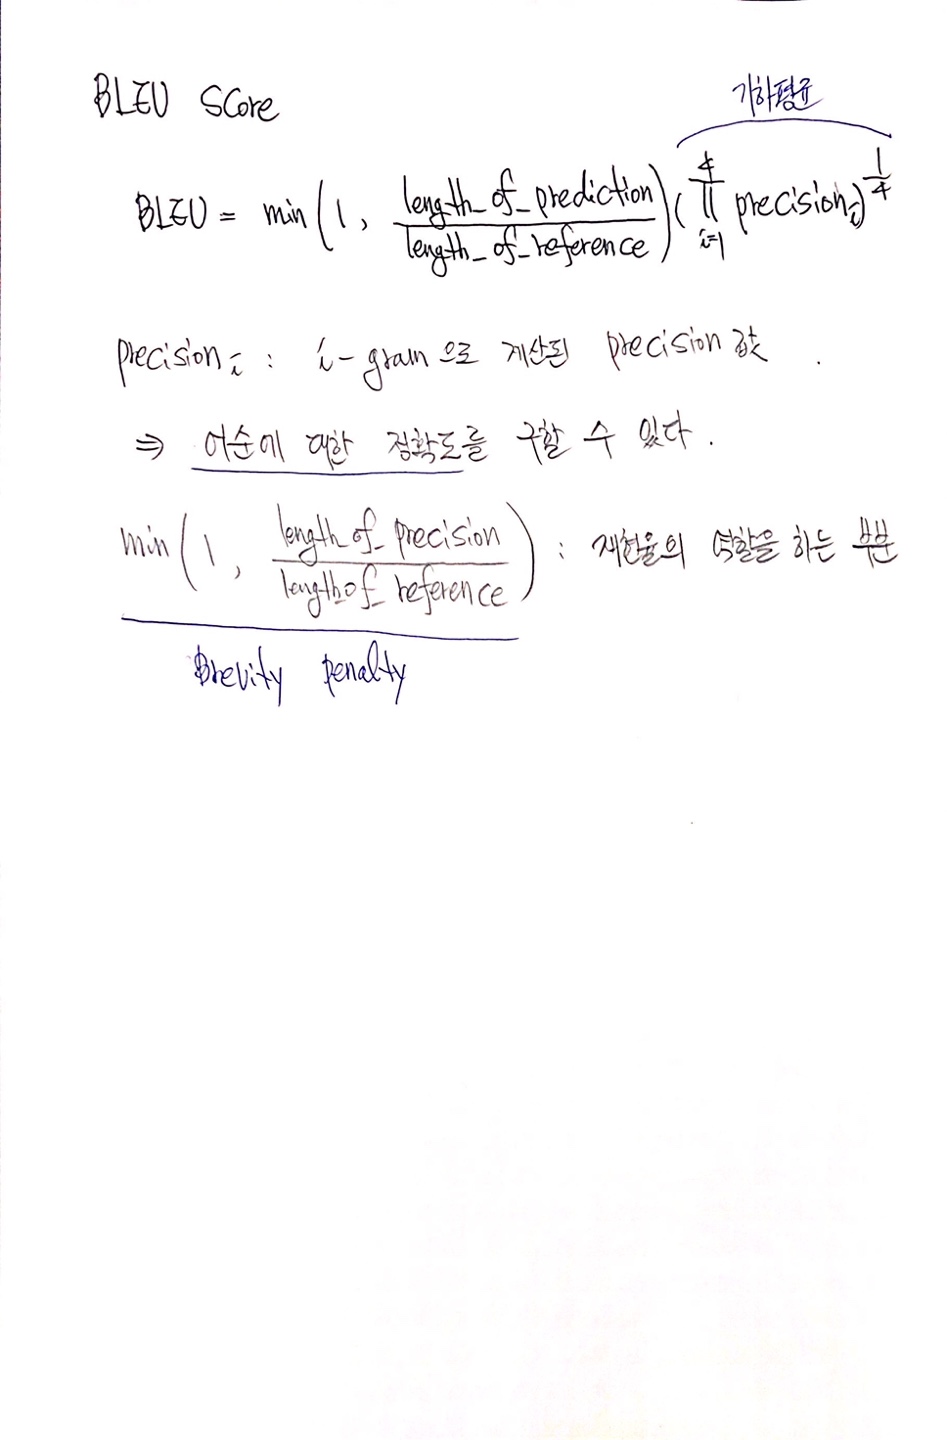 BLEU Score
기하평균
BLEU = min(1, length_of_prediction / length_of_reference)(∏_{i=1}^{4} precision_i)^{1/4}
precision_i : i-gram으로 계산된 precision 값.
⇒ 어순에 대한 정확도를 구할 수 있다.
min(1, length of_precision / length of_reference) : 재현율의 역할을 하는 부분
Brevity penalty